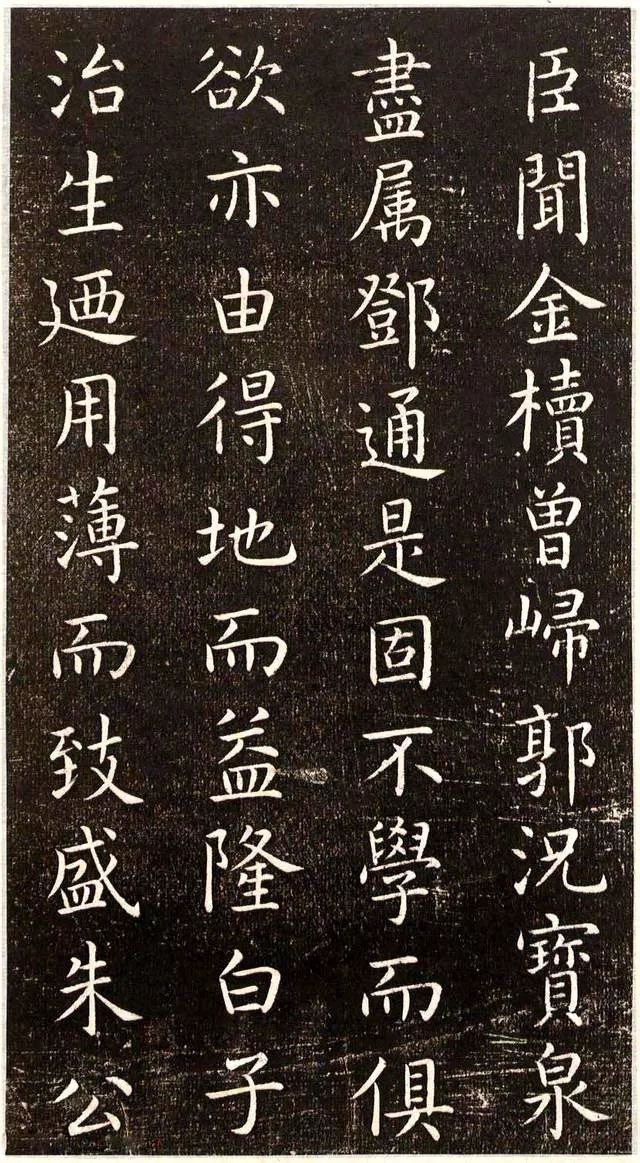 臣聞金櫝曾㱕郭況寶泉
盡属鄧通是固不學而俱
欲亦由得地而益隆白子
治生廼用薄而致盛朱公